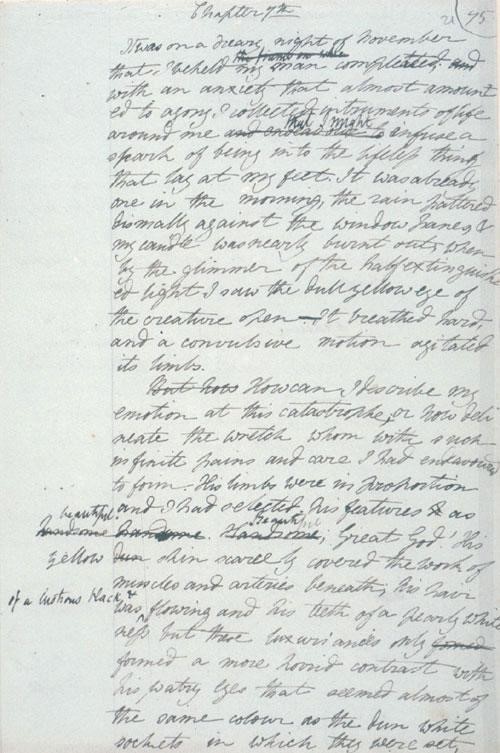 Chapter 7th
21 95
It was on a dreary night of November
that I beheld the frame on wh my man compleated and
with an anxiety that almost amount
ed to agony, I collected instruments of life
around me and endeavour to that I might infuse a
spark of being into the lifeless thing
that lay at my feet. It was already
one in the morning, the rain pattered
dismally against the window panes, &
my candle was nearly burnt out, when
by the glimmer of the half extinguish
ed light I saw the dull yellow eye of
the creature open – It breathed hard,
and a convulsive motion agitated
its limbs.
But how How can I describe my
emotion at this catastrophe, or how deli
neate the wretch whom with such
infinite pains and care I had endeavoured
to form. His limbs were in proportion
and I had selected his features as
beautiful.
handsome handsome. Handsome, Beautiful, Great God! His
yellow dun skin scarcely covered the work of
muscles and arteries beneath; his hair
of a lustrous black, &
was flowing and his teeth of a pearly white
ness but these luxuriances only
formed a more horrid contrast with
his watry eyes that seemed almost of
the same colour as the dun white
sockets in which they were set